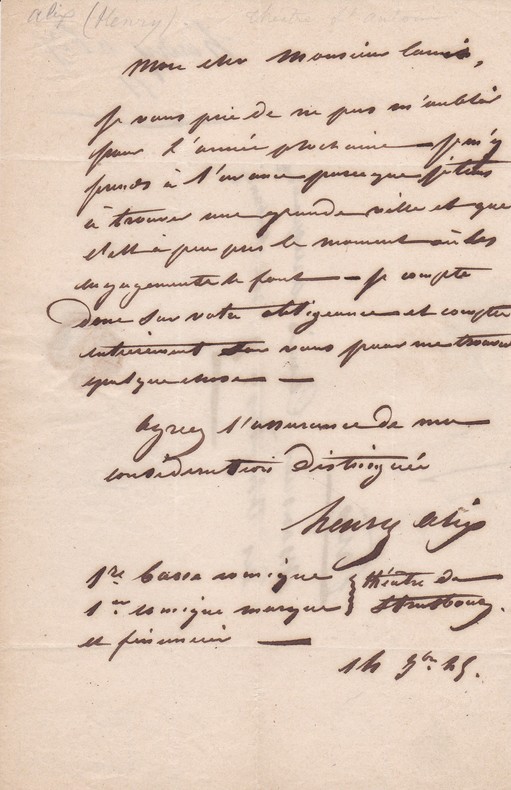 alix (Henry). théatre St antoine
Mon cher Monsieur
je vous prie de ne pas m'oublier
pour l'année prochaine — je m'y
prends à l'avance parceque je tiens
à trouver une grande ville et que
c'est à peu près le moment où les
engagements se font — je compte
donc sur votre obligeance et compte
entièrement sur vous pour me trouver
quelque chose —
Agréez l'assurance de ma
considération distinguée
henry alix
1re basse comique } théâtre de
1er comique marqué } Strasbourg.
et financier —
14